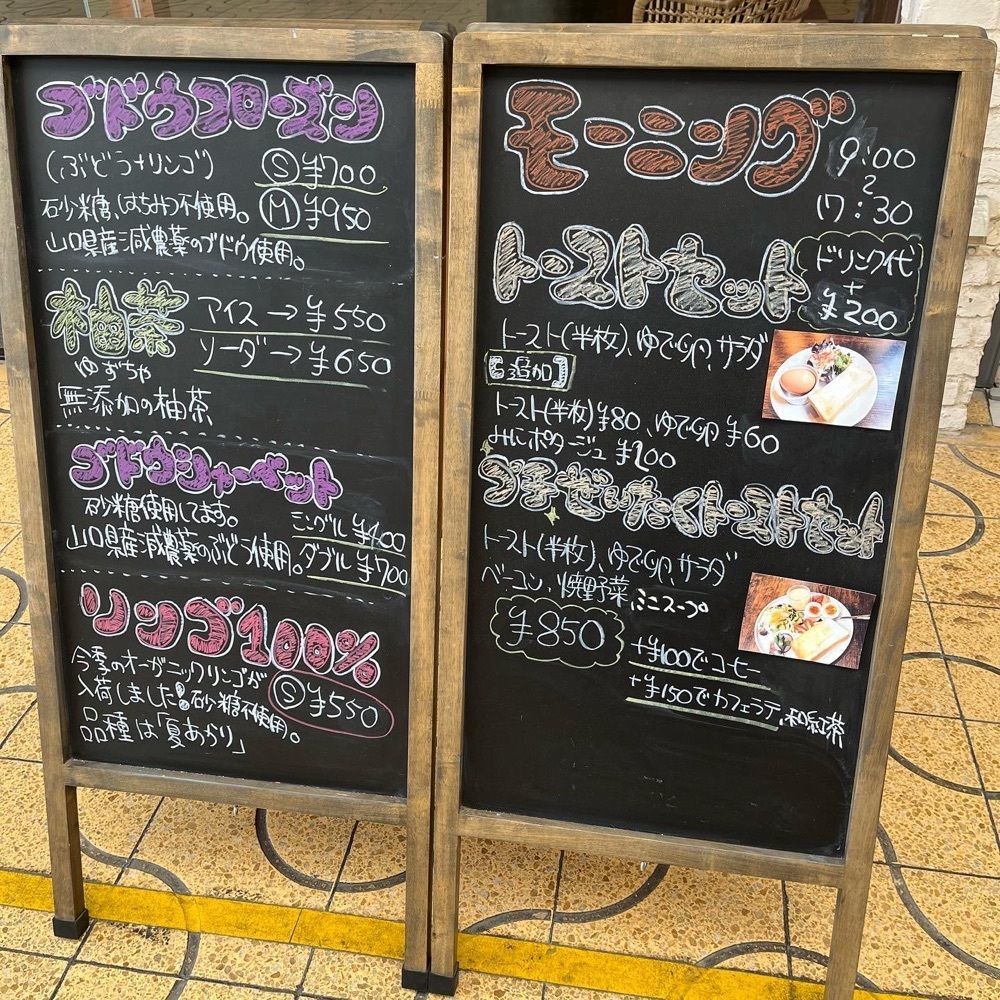 ブドウフローズン
(ぶどう+リンゴ) Ⓢ ¥700
砂糖、はちみつ不使用。 Ⓜ ¥950
山口県産減農薬のブドウ使用。
柚茶 アイス→¥550
ゆずちゃ ソーダ→¥650
無添加の柚茶
ブドウシャーベット
砂糖使用してます。 シングル ¥400
山口県産減農薬のぶどう使用。ダブル ¥700
リンゴ100%
今季のオーガニックリンゴが
入荷しました!砂糖不使用。 Ⓢ ¥550
品種は「夏あかり」
モーニング 9:00
17:30
トーストセット ドリンク代
+
¥200
トースト(半枚)、ゆで卵、サラダ
【追加】
トースト(半枚)¥80、ゆで卵¥60
みにポタージュ ¥200
プチぜいたくトーストセット
トースト(半枚)、ゆで卵、サラダ
ベーコン、焼野菜、ミニスープ
¥850
+¥100でコーヒー
+¥150でカフェラテ、和紅茶